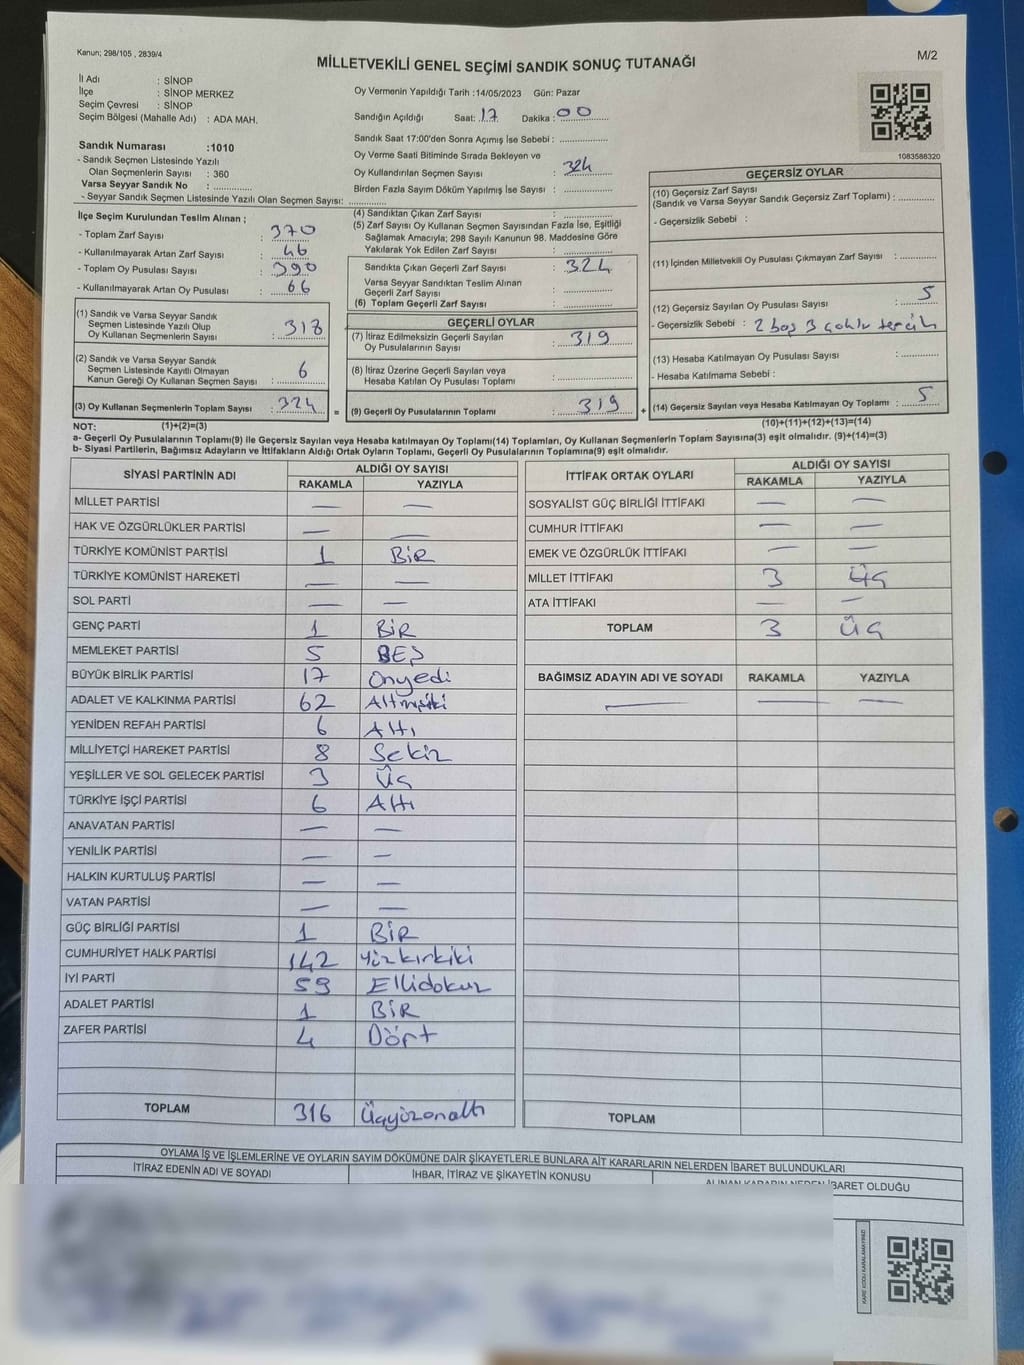 Kanun; 298/105 , 2839/4
M/2
MİLLETVEKİLİ GENEL SEÇİMİ SANDIK SONUÇ TUTANAĞI
İl Adı : SİNOP
İlçe : SİNOP MERKEZ
Seçim Çevresi : SİNOP
Seçim Bölgesi (Mahalle Adı) : ADA MAH.
Oy Vermenin Yapıldığı Tarih :14/05/2023 Gün: Pazar
Sandığın Açıldığı Saat: 17 Dakika : 00
Sandık Saat 17:00'den Sonra Açımış İse Sebebi :
Oy Verme Saati Bitiminde Sırada Bekleyen ve
Oy Kullandırılan Seçmen Sayısı : 324
Birden Fazla Sayım Döküm Yapılmış İse Sayısı :
1083586320
Sandık Numarası :1010
- Sandık Seçmen Listesinde Yazılı
Olan Seçmenlerin Sayısı : 360
Varsa Seyyar Sandık No :
- Seyyar Sandık Seçmen Listesinde Yazılı Olan Seçmen Sayısı:
İlçe Seçim Kurulundan Teslim Alınan ;
- Toplam Zarf Sayısı : 370
- Kullanılmayarak Artan Zarf Sayısı : 46
- Toplam Oy Pusulası Sayısı : 390
- Kullanılmayarak Artan Oy Pusulası : 66
(1) Sandık ve Varsa Seyyar Sandık
Seçmen Listesinde Yazılı Olup
Oy Kullanan Seçmenlerin Sayısı : 318
(2) Sandık ve Varsa Seyyar Sandık
Seçmen Listesinde Kayıtlı Olmayan
Kanun Gereği Oy Kullanan Seçmen Sayısı : 6
(3) Oy Kullanan Seçmenlerin Toplam Sayısı : 324
(4) Sandıktan Çıkan Zarf Sayısı :
(5) Zarf Sayısı Oy Kullanan Seçmen Sayısından Fazla İse, Eşitliği
Sağlamak Amacıyla; 298 Sayılı Kanunun 98. Maddesine Göre
Yakılarak Yok Edilen Zarf Sayısı :
Sandıkta Çıkan Geçerli Zarf Sayısı : 324
Varsa Seyyar Sandıktan Teslim Alınan
Geçerli Zarf Sayısı :
(6) Toplam Geçerli Zarf Sayısı :
GEÇERLİ OYLAR
(7) İtiraz Edilmeksizin Geçerli Sayılan
Oy Pusulalarının Sayısı : 319
(8) İtiraz Üzerine Geçerli Sayılan veya
Hesaba Katılan Oy Pusulası Toplamı :
= (9) Geçerli Oy Pusulalarının Toplamı : 319
GEÇERSİZ OYLAR
(10) Geçersiz Zarf Sayısı
(Sandık ve Varsa Seyyar Sandık Geçersiz Zarf Toplamı) :
- Geçersizlik Sebebi :
(11) İçinden Milletvekili Oy Pusulası Çıkmayan Zarf Sayısı :
(12) Geçersiz Sayılan Oy Pusulası Sayısı : 5
- Geçersizlik Sebebi : 2 boş 3 çoklu tercih
(13) Hesaba Katılmayan Oy Pusulası Sayısı :
- Hesaba Katılmama Sebebi :
+ (14) Geçersiz Sayılan veya Hesaba Katılmayan Oy Toplamı : 5
NOT: (1)+(2)=(3)
(10)+(11)+(12)+(13)=(14)
a- Geçerli Oy Pusulalarının Toplamı(9) ile Geçersiz Sayılan veya Hesaba katılmayan Oy Toplamı(14) Toplamları, Oy Kullanan Seçmenlerin Toplam Sayısına(3) eşit olmalıdır. (9)+(14)=(3)
b- Siyasi Partilerin, Bağımsız Adayların ve İttifakların Aldığı Ortak Oyların Toplamı, Geçerli Oy Pusulalarının Toplamına(9) eşit olmalıdır.
SİYASİ PARTİNİN ADI ALDIĞI OY SAYISI
RAKAMLA YAZIYLA
MİLLET PARTİSİ — —
HAK VE ÖZGÜRLÜKLER PARTİSİ — —
TÜRKİYE KOMÜNİST PARTİSİ 1 BİR
TÜRKİYE KOMÜNİST HAREKETİ — —
SOL PARTİ — —
GENÇ PARTİ 1 BİR
MEMLEKET PARTİSİ 5 BEŞ
BÜYÜK BİRLİK PARTİSİ 17 Onyedi
ADALET VE KALKINMA PARTİSİ 62 Altmışiki
YENİDEN REFAH PARTİSİ 6 Altı
MİLLİYETÇİ HAREKET PARTİSİ 8 Sekiz
YEŞİLLER VE SOL GELECEK PARTİSİ 3 Üç
TÜRKİYE İŞÇİ PARTİSİ 6 Altı
ANAVATAN PARTİSİ — —
YENİLİK PARTİSİ — —
HALKIN KURTULUŞ PARTİSİ — —
VATAN PARTİSİ — —
GÜÇ BİRLİĞİ PARTİSİ 1 BİR
CUMHURİYET HALK PARTİSİ 142 Yüzkırkiki
İYİ PARTİ 59 Ellidokuz
ADALET PARTİSİ 1 BİR
ZAFER PARTİSİ 4 Dört
TOPLAM 316 Üçyüzonaltı
İTTİFAK ORTAK OYLARI ALDIĞI OY SAYISI
RAKAMLA YAZIYLA
SOSYALİST GÜÇ BİRLİĞİ İTTİFAKI — —
CUMHUR İTTİFAKI — —
EMEK VE ÖZGÜRLÜK İTTİFAKI — —
MİLLET İTTİFAKI 3 Üç
ATA İTTİFAKI — —
TOPLAM 3 Üç
BAĞIMSIZ ADAYIN ADI VE SOYADI RAKAMLA YAZIYLA
— — —
TOPLAM
OYLAMA İŞ VE İŞLEMLERİNE VE OYLARIN SAYIM DÖKÜMÜNE DAİR ŞİKAYETLERLE BUNLARA AİT KARARLARIN NELERDEN İBARET BULUNDUKLARI
İTİRAZ EDENİN ADI VE SOYADI İHBAR, İTİRAZ VE ŞİKAYETİN KONUSU ALINAN KARARIN NEDEN İBARET OLDUĞU
KARE KODU KARALAMAYINIZ!